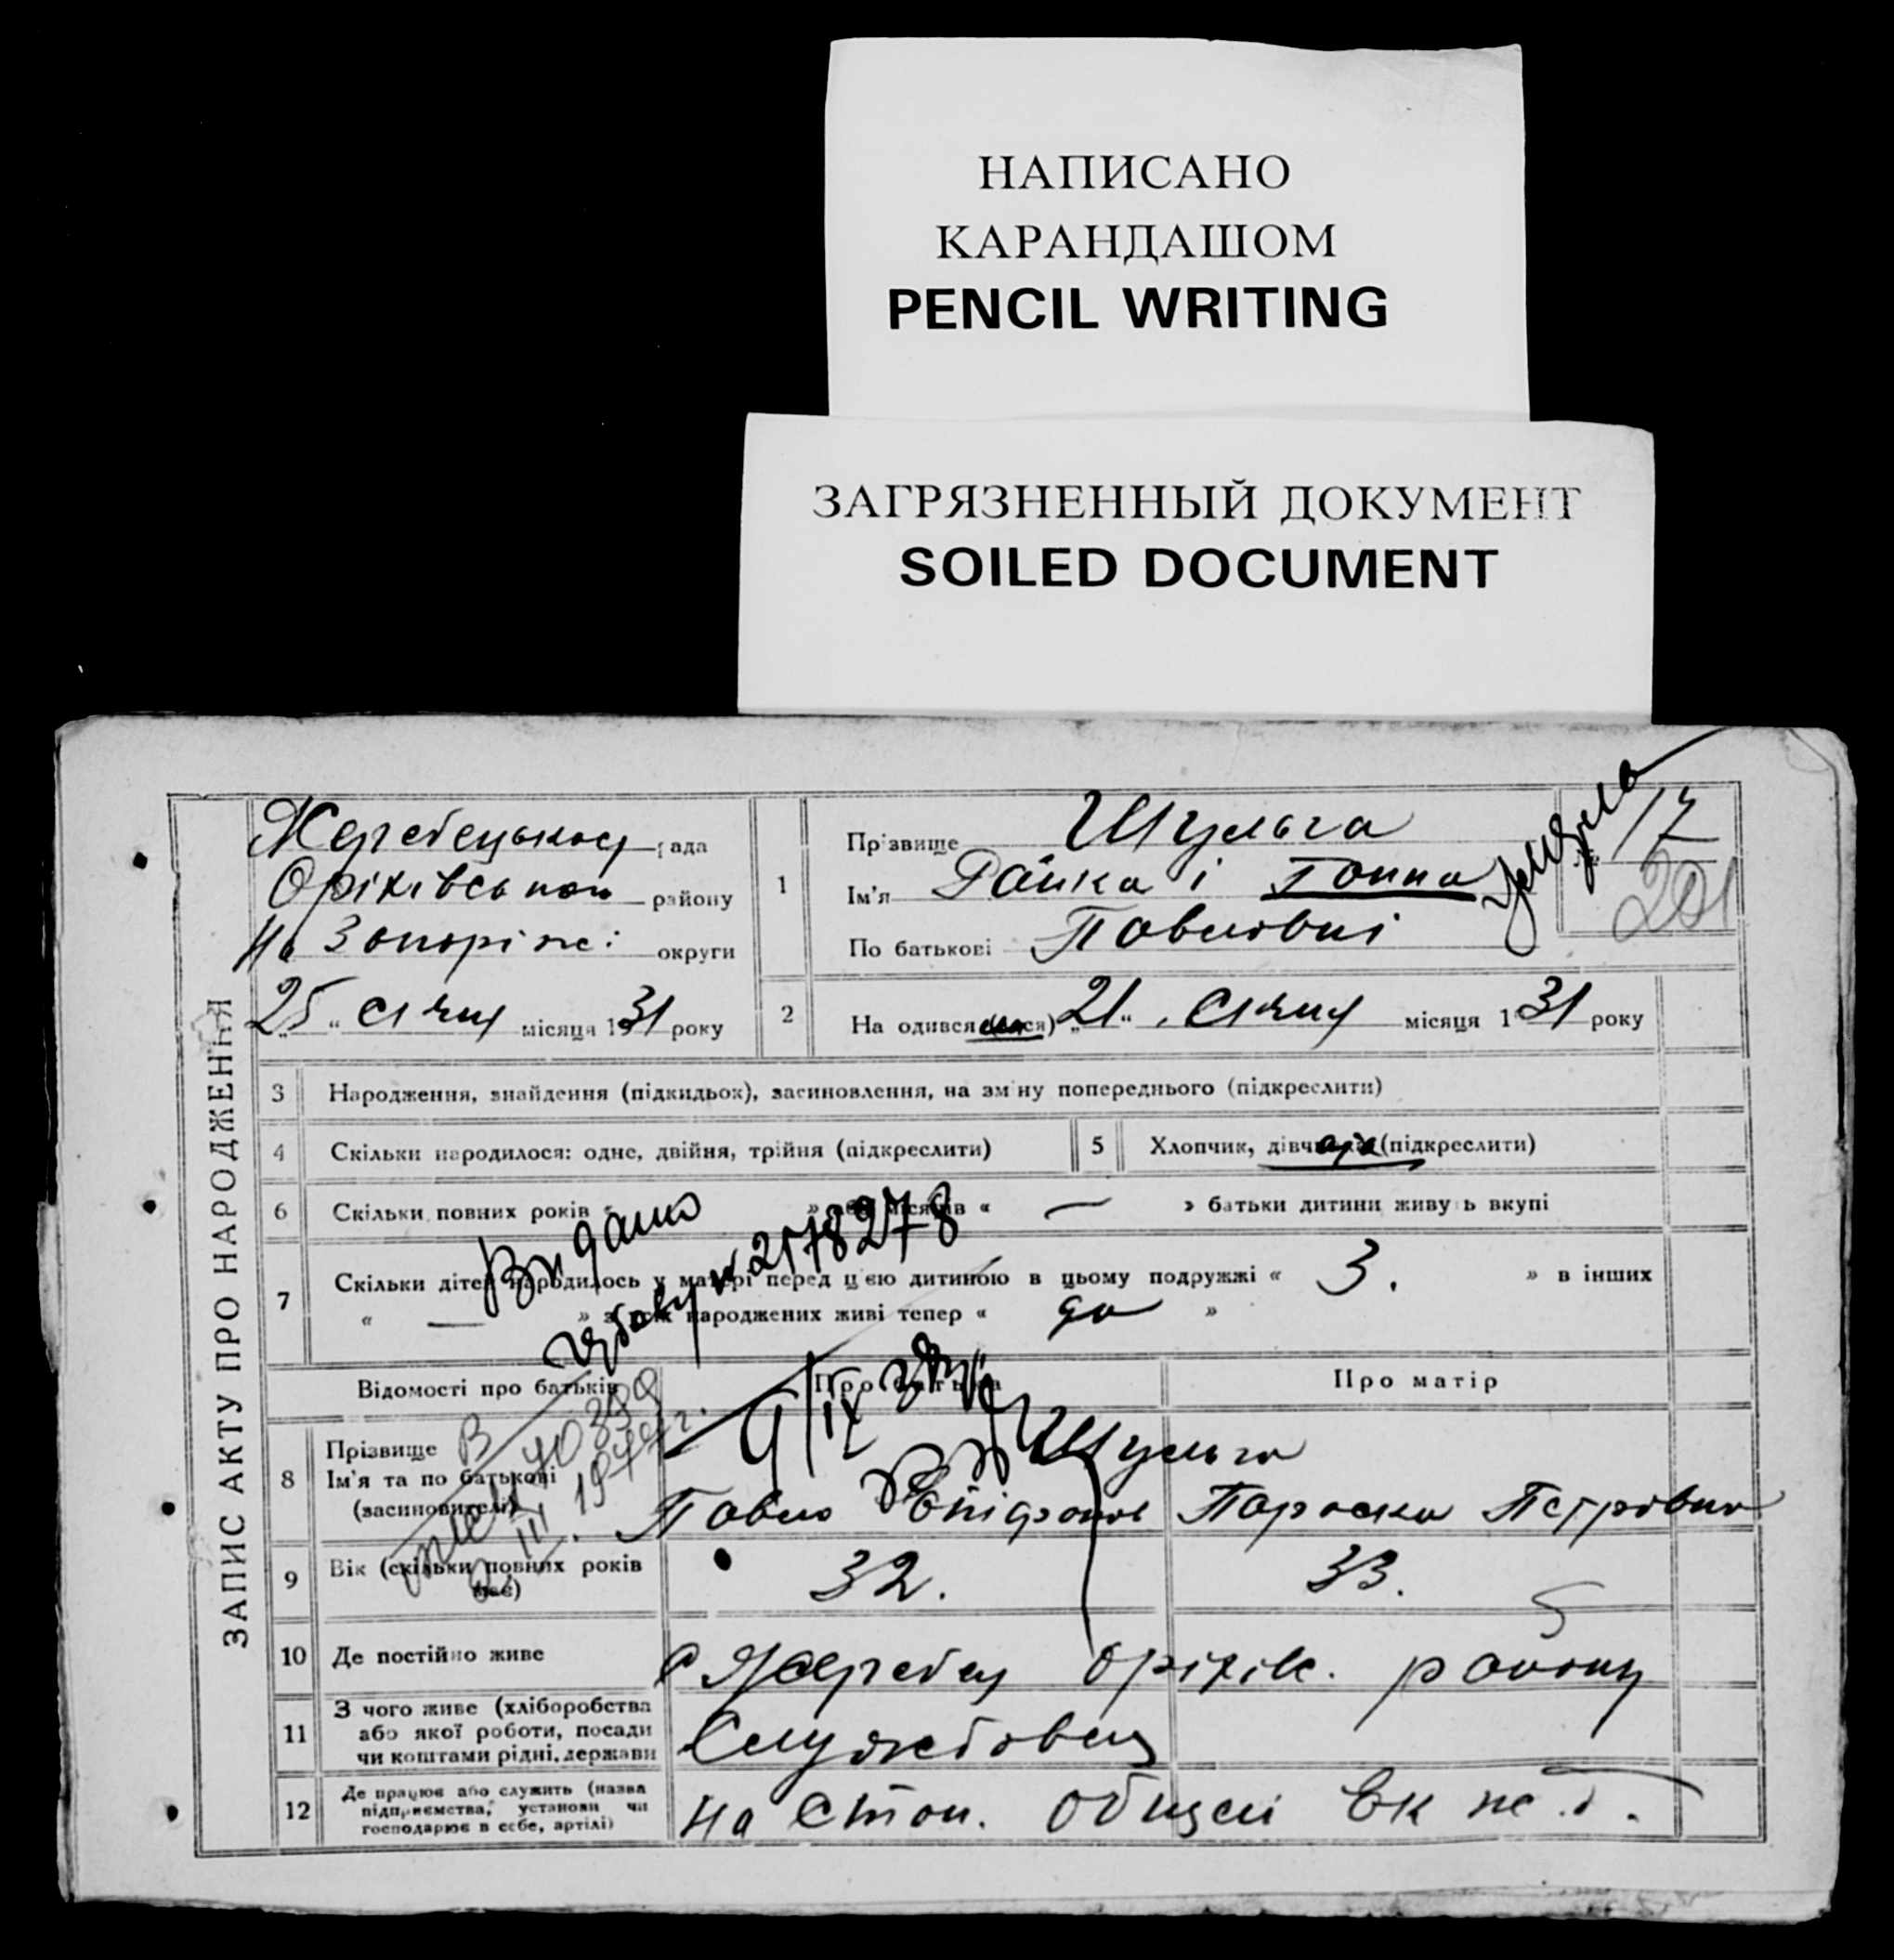 НАПИСАНО
КАРАНДАШОМ
PENCIL WRITING
ЗАГРЯЗНЕННЫЙ ДОКУМЕНТ
SOILED DOCUMENT
ЗАПИС АКТУ ПРО НАРОДЖЕННЯ
Жеребецькоу рада
Оріхівськои району
На Запоріжі округи
"25" січня місяця 1931 року
1
Прізвище Шульга
Ім'я Райка і Ганна
По батькові Павловні
Умерла
17
201
2 На одився лася) "21" січня місяця 1931 року
3 Народження, знайдення (підкидьок), засиновлення, на зм ну попереднього (підкреслити)
4 Скільки народилося: одне, двійня, трійня (підкреслити)
5 Хлопчик, дівч (підкреслити)
6 Скільки повних років « » або місяців « — » батьки дитини живуть вкупі
7 Скільки дітей народилось у матері перед цією дитиною в цьому подружжі « 3. » в інших
« — » з усіх народжених живі тепер « да »
Видано
№ 2178278
Відомості про батьків
Про батька
Про матір
9/IX
В
40399
III. 19
8 Прізвище
Ім'я та по батькові
(засиновителі)
Шульга
Павло Епіфанов Параска Петрівна
9 Вік (скільки повних років
має)
32. 33.
10 Де постійно живе
с Жеребец Оріхів. району
11 З чого живе (хліборобства
або якої роботи, посади
чи коштами рідні, держави
Службовец
12 Де працює або служить (назва
підприємства, установи чи
господарює в себе, артілі)
На Стан. Общей Ек ж.д.